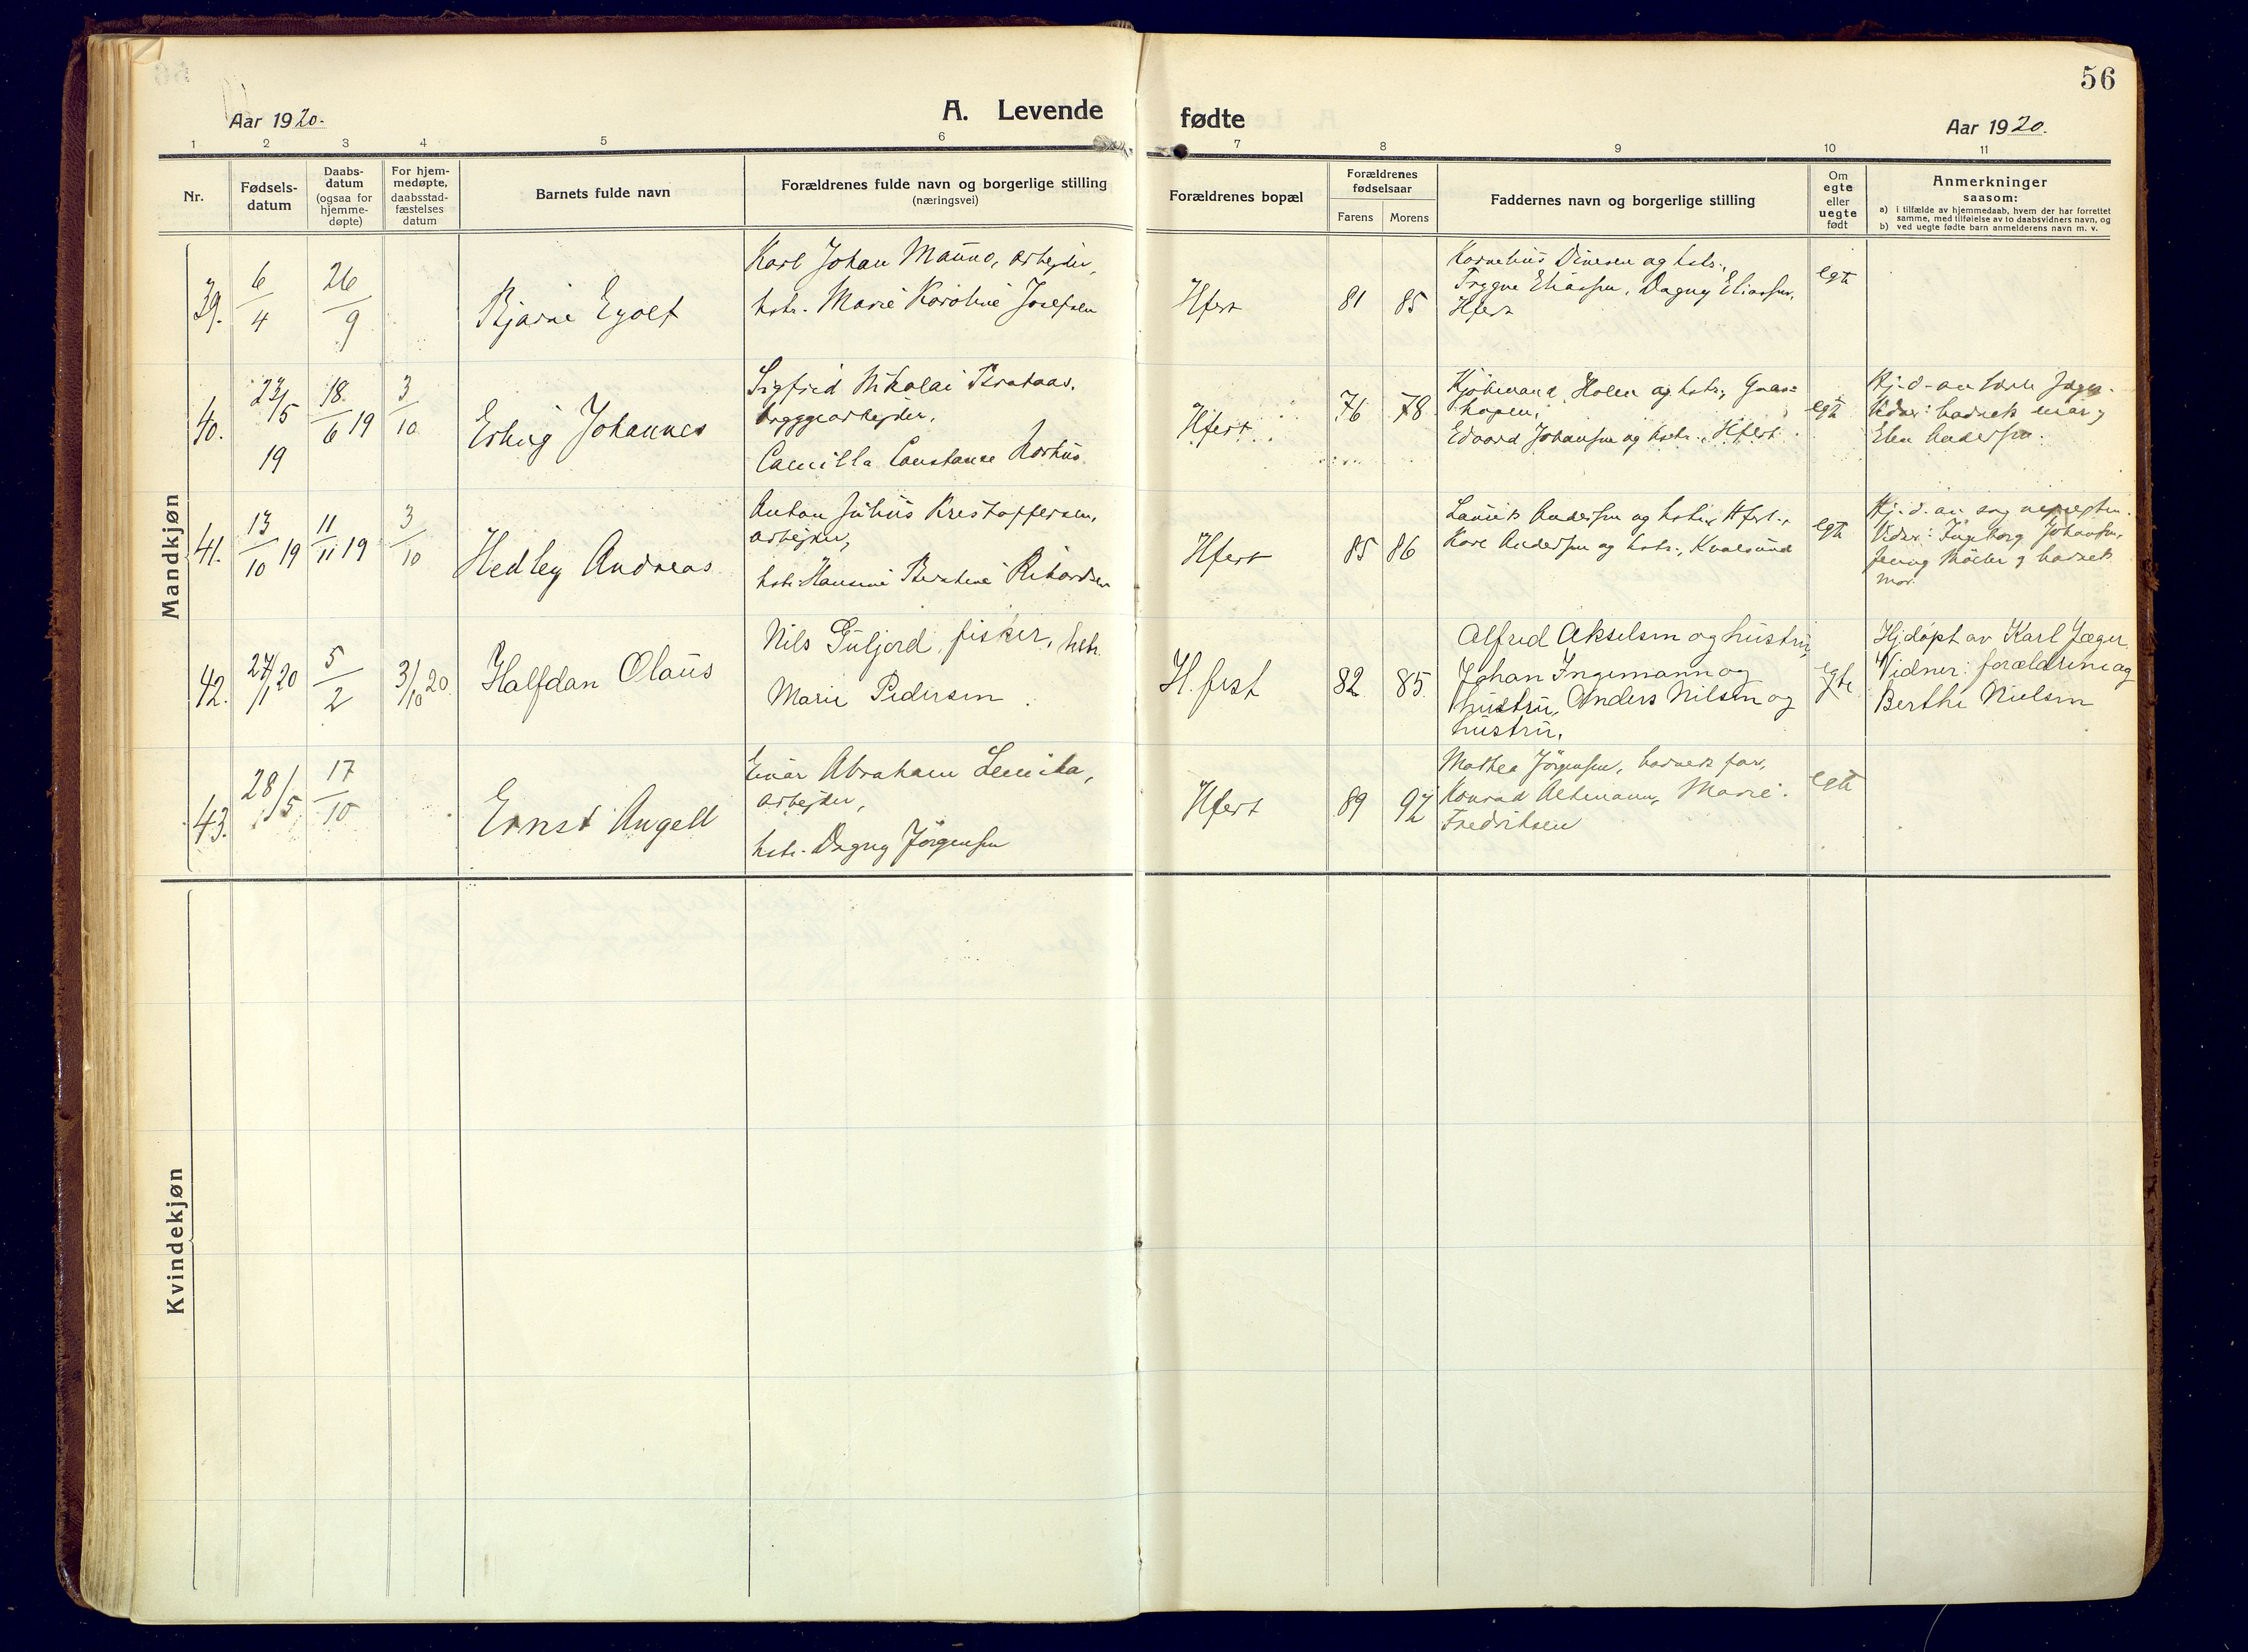 56
Aar 1920.
A. Levende
fødte
Aar 1920.
1 2 3 4 5 6 7 8 9 10 11
Nr.
Fødsels-
datum
Daabs-
datum
(ogsaa for
hjemme-
døpte)
For hjem-
medøpte,
daabsstad-
fæstelses
datum
Barnets fulde navn
Forældrenes fulde navn og borgerlige stilling
(næringsvei)
Forældrenes bopæl
Forældrenes
fødselsaar
Farens Morens
Faddernes navn og borgerlige stilling
Om
egte
eller
uegte
født
Anmerkninger
saasom:
a) i tilfælde av hjemmedaab, hvem der har forrettet
samme, med tilføielse av to daabsvidners navn, og
b) ved uegte fødte barn anmelderens navn m. v.
Mandkjøn
39.
6/4
26/9
Bjarne Eyolf
Karl Johan Mauno, arbejder,
hstr. Marie Karoline Josefsen
Hfest
81 85
Kornelius Dinesen og hstr.,
Trygve Eliassen, Dagny Eliassen,
Hfest
egte
40.
23/5
19
18/6 19
3/10
Erling Johannes
Sigfred Nikolai
bryggearbejder,
Camilla Constanse
Hfest
76 78
Kjøbmand Holen og hstr.,
Edvard Johansen og hstr., Hfest
egte
Hj.d. av Jæger.
Vidner: barnets mor og
Andersen.
41.
13/10 19
11/11 19
3/10
Hedley Andreas
Anton Julius Kristoffersen,
arbejder,
hstr. Hansine Rikardsen
Hfest
85 86
Laurits Andersen og hstr., Hfest.,
Karl Andersen og hstr., Kvalsund
egte
Hj.d. av sognepresten.
Vidner: Ingeborg Johansen,
Jenny Møller og barnets
mor.
42.
27/1 20
5/2
3/10 20
Halfdan Olaus
Nils Guljord, fisker, hstr.
Marie Pedersen.
H.fest
82 85.
Alfred Akselsen og hustru,
Johan Ingemann og
hustru, Anders Nilsen og
hustru.
egte
Hjdøpt av Karl Jæger.
Vidner: forældrene og
Berthe Nielsen
43.
28/5
17/10
Ernst Angell
Einar Abraham
arbejder,
hstr. Dagny Jørgensen
Hfest
89 92
Mathea Jørgensen, barnets far,
Konrad Altmann, Marie
Fredriksen
egte
Kvindekjøn